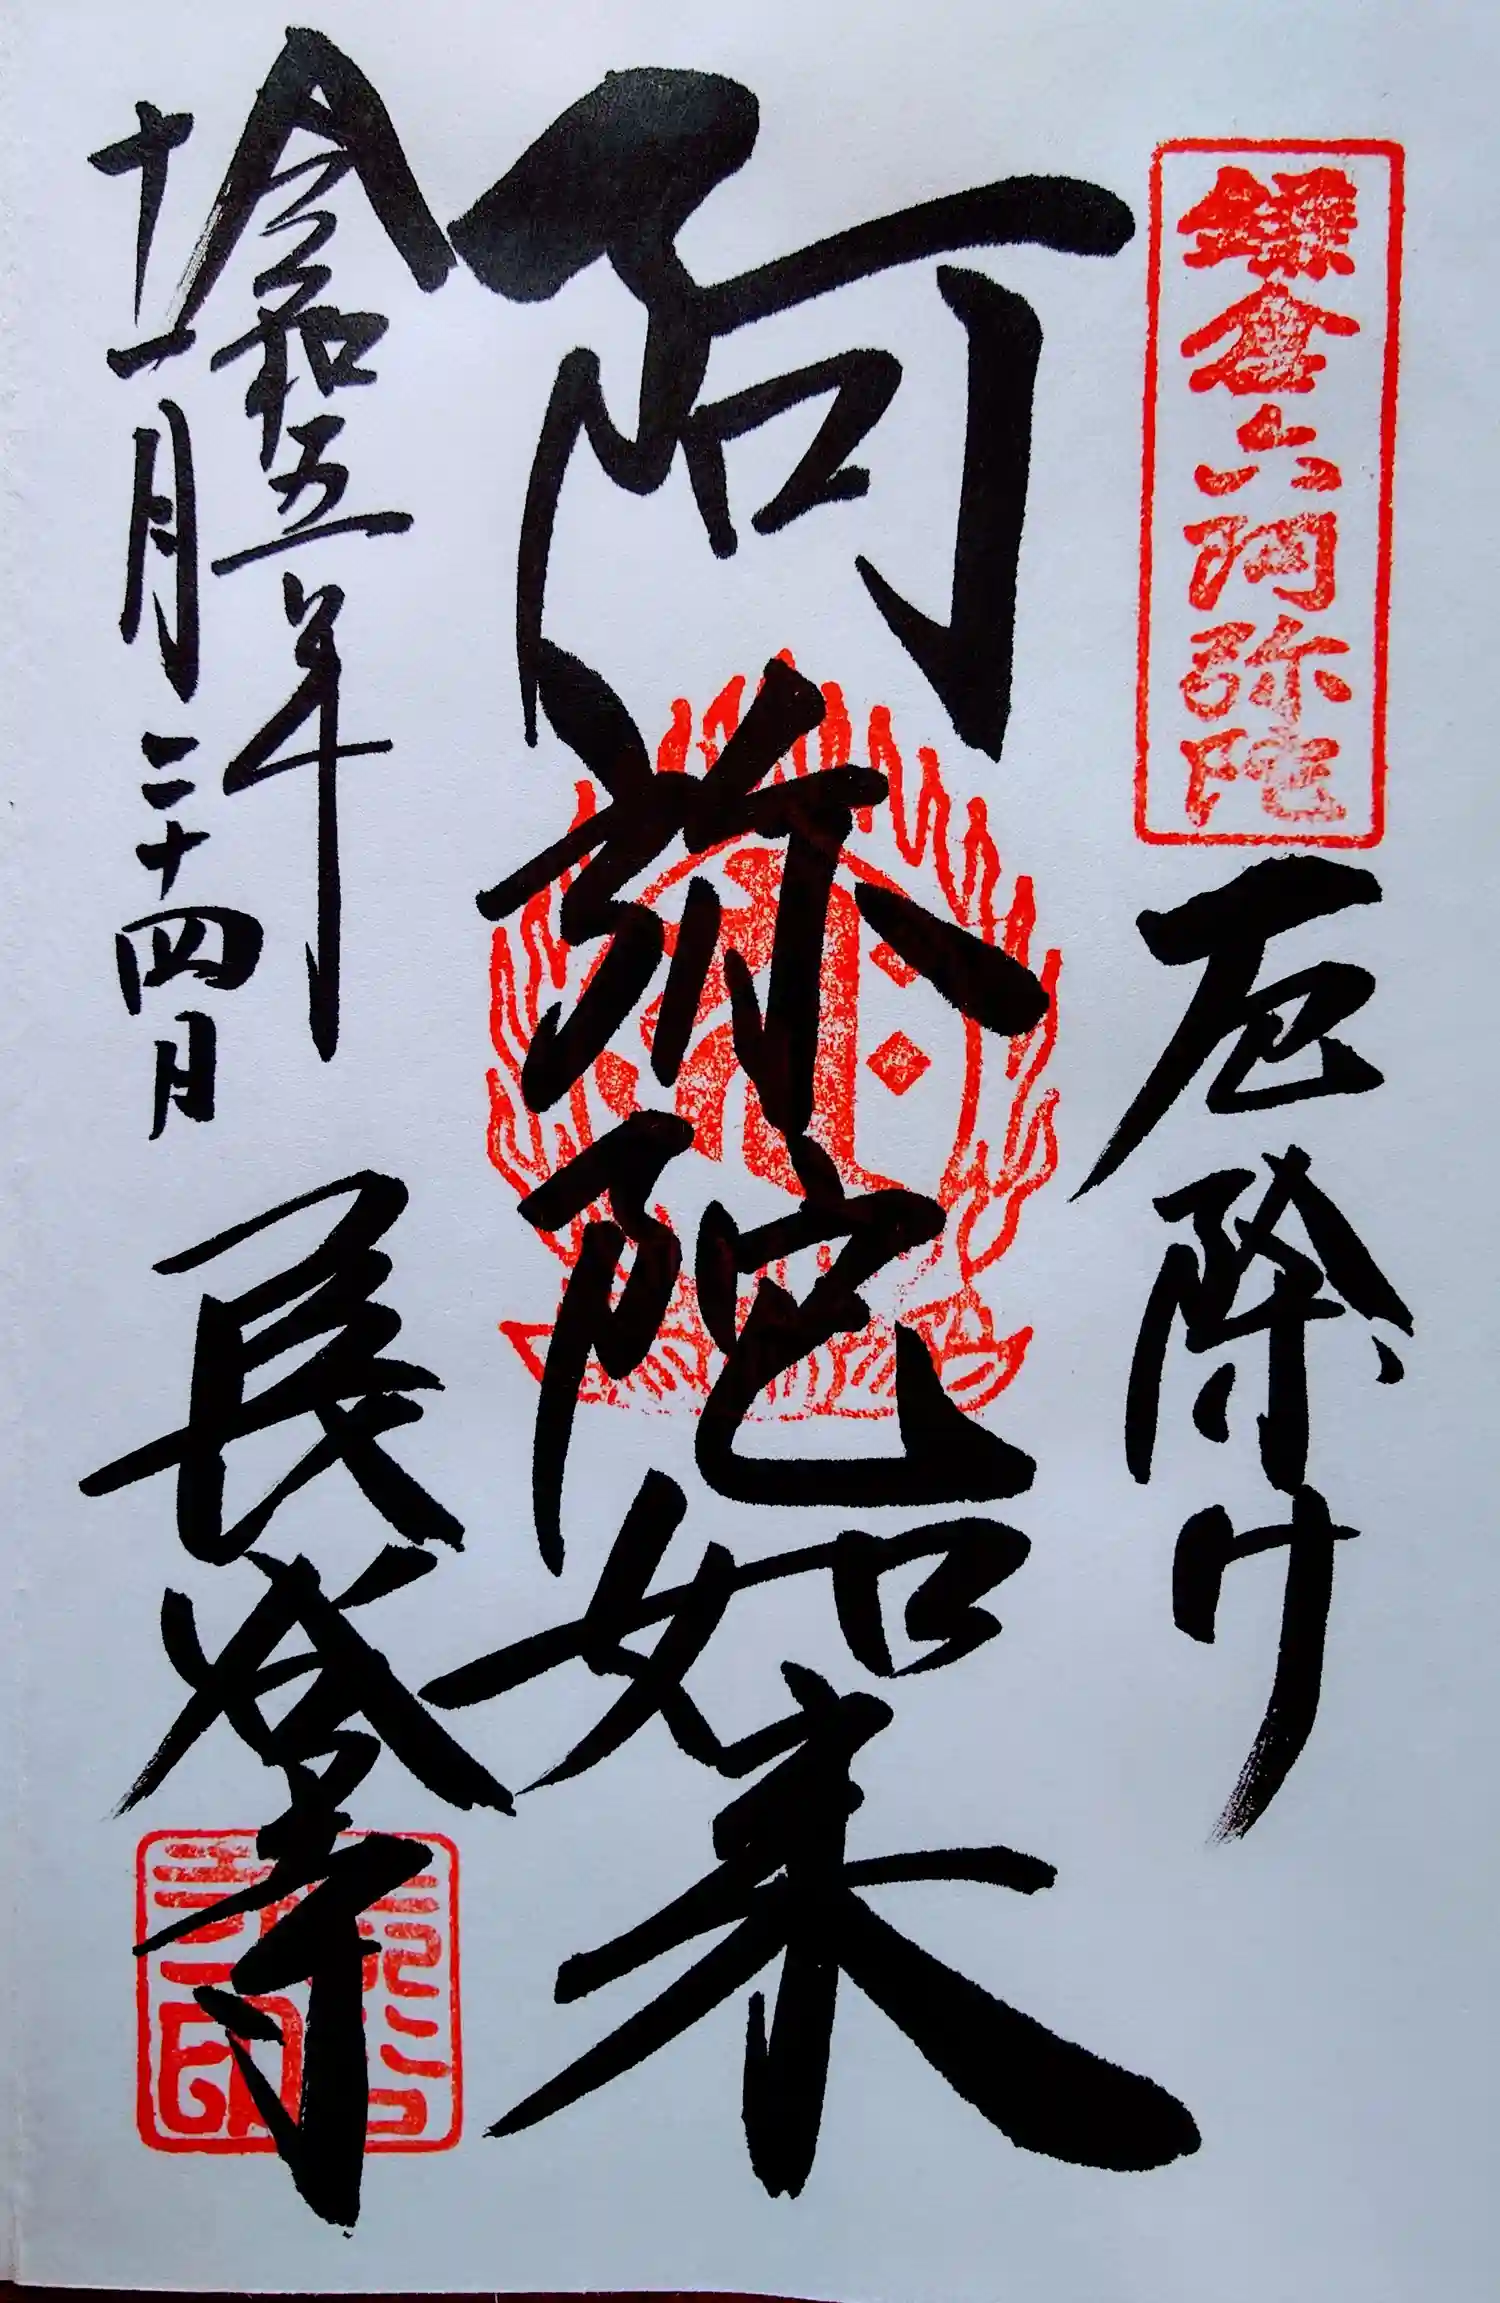 鎌倉六阿弥陀
厄除け
阿弥陀如来
令和五年
十一月二十四日
長谷寺